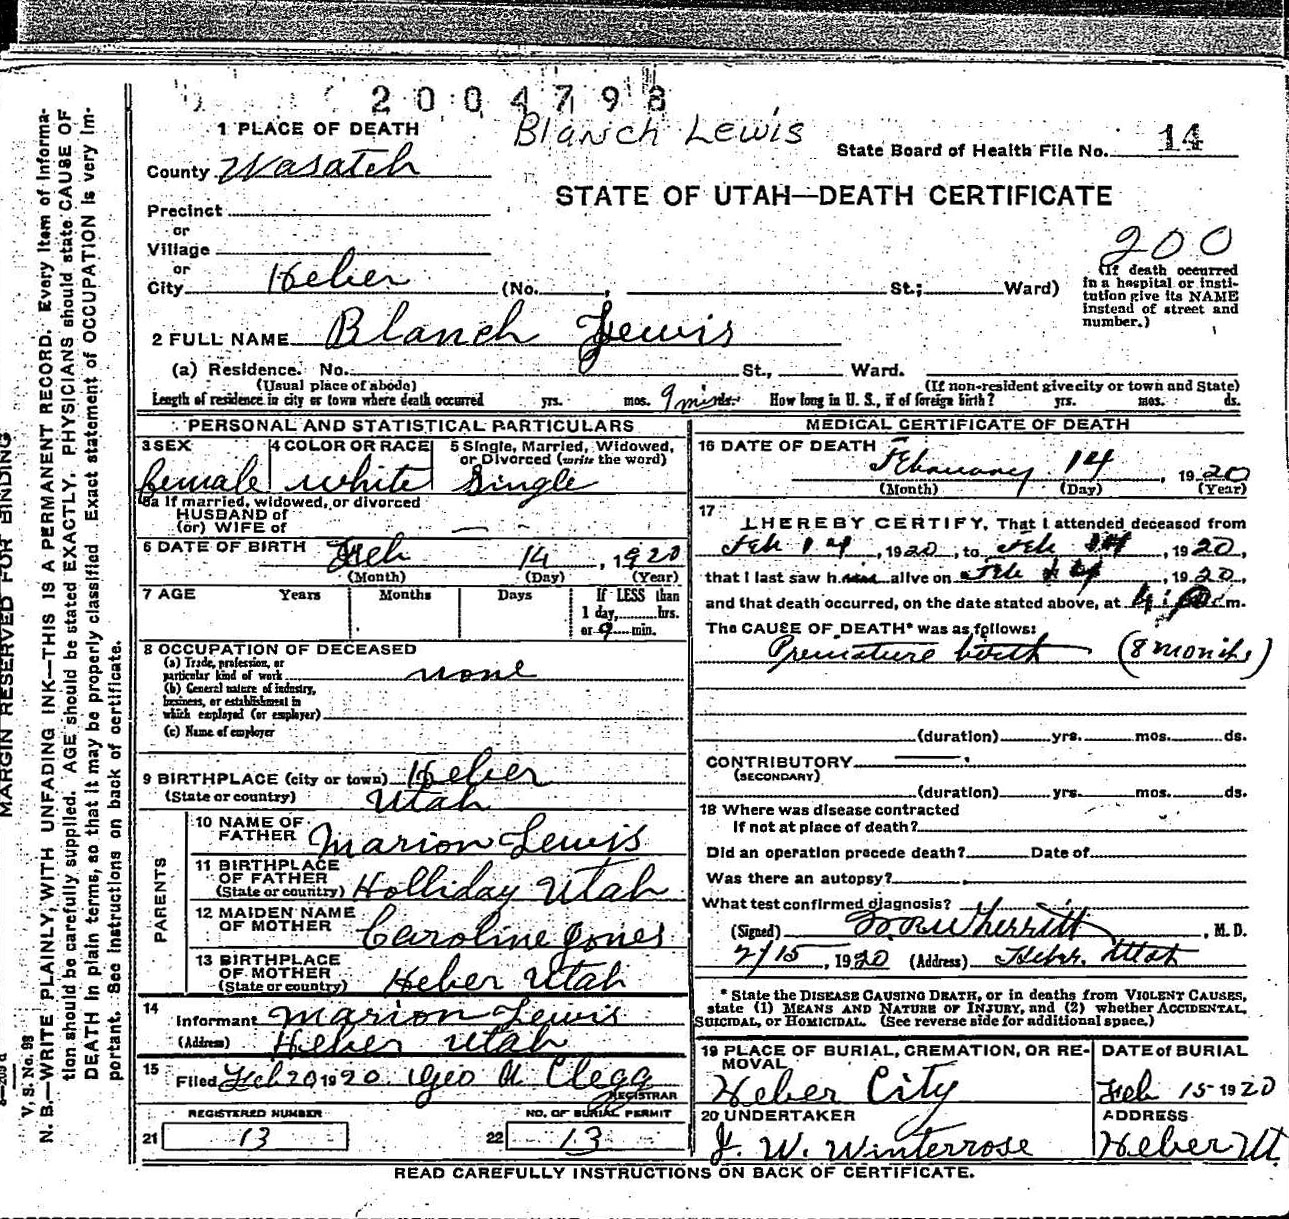 2004798
Blanch Lewis
1 PLACE OF DEATH
State Board of Health File No. 14
County Wasatch
STATE OF UTAH—DEATH CERTIFICATE
Precinct
or
Village
200
or
City Heber (No. , St.; Ward)
(If death occurred
in a hospital or insti-
tution give its NAME
instead of street and
number.)
2 FULL NAME Blanch Lewis
(a) Residence. No. St., Ward.
(Usual place of abode) (If non-resident give city or town and State)
Length of residence in city or town where death occurred yrs. mos. 9 mins. How long in U. S., if of foreign birth? yrs. mos. ds.
PERSONAL AND STATISTICAL PARTICULARS
3 SEX
female
4 COLOR OR RACE
white
5 Single, Married, Widowed,
or Divorced (write the word)
Single
5a If married, widowed, or divorced
HUSBAND of
(or) WIFE of
6 DATE OF BIRTH Feb 14, 1920
(Month) (Day) (Year)
7 AGE Years Months Days If LESS than
1 day, hrs.
or 9 min.
8 OCCUPATION OF DECEASED
(a) Trade, profession, or
particular kind of work none
(b) General nature of industry,
business, or establishment in
which employed (or employer)
(c) Name of employer
9 BIRTHPLACE (city or town) Heber
(State or country) Utah
PARENTS
10 NAME OF
FATHER Marion Lewis
11 BIRTHPLACE
OF FATHER
(State or country) Holliday Utah
12 MAIDEN NAME
OF MOTHER Caroline Jones
13 BIRTHPLACE
OF MOTHER
(State or country) Heber Utah
14
Informant Marion Lewis
(Address) Heber Utah
15
Filed Feb 20 1920 Geo A Clegg
REGISTRAR
REGISTERED NUMBER NO. OF BURIAL PERMIT
21 13 22 13
MEDICAL CERTIFICATE OF DEATH
16 DATE OF DEATH
February 14, 1920
(Month) (Day) (Year)
17
I HEREBY CERTIFY, That I attended deceased from
Feb 14, 1920, to Feb 14, 1920,
that I last saw h alive on Feb 14, 1920,
and that death occurred, on the date stated above, at m.
The CAUSE OF DEATH* was as follows:
Premature birth (8 months)
(duration) yrs. mos. ds.
CONTRIBUTORY
(SECONDARY)
(duration) yrs. mos. ds.
18 Where was disease contracted
If not at place of death?
Did an operation precede death? Date of
Was there an autopsy?
What test confirmed diagnosis?
(Signed) Wherritt, M. D.
2/15, 1920 (Address) Heber, Utah
* State the DISEASE CAUSING DEATH, or in deaths from VIOLENT CAUSES,
state (1) MEANS AND NATURE OF INJURY, and (2) whether ACCIDENTAL,
SUICIDAL, or HOMICIDAL. (See reverse side for additional space.)
19 PLACE OF BURIAL, CREMATION, OR RE-
MOVAL
Heber City
DATE of BURIAL
Feb 15 1920
20 UNDERTAKER
J. W. Winterrose
ADDRESS
Heber Ut
READ CAREFULLY INSTRUCTIONS ON BACK OF CERTIFICATE.
MARGIN RESERVED FOR BINDING
V. S. No. 98
N. B.—WRITE PLAINLY, WITH UNFADING INK—THIS IS A PERMANENT RECORD. Every item of informa-
tion should be carefully supplied. AGE should be stated EXACTLY. PHYSICIANS should state CAUSE OF
DEATH in plain terms, so that it may be properly classified. Exact statement of OCCUPATION is very im-
portant. See instructions on back of certificate.